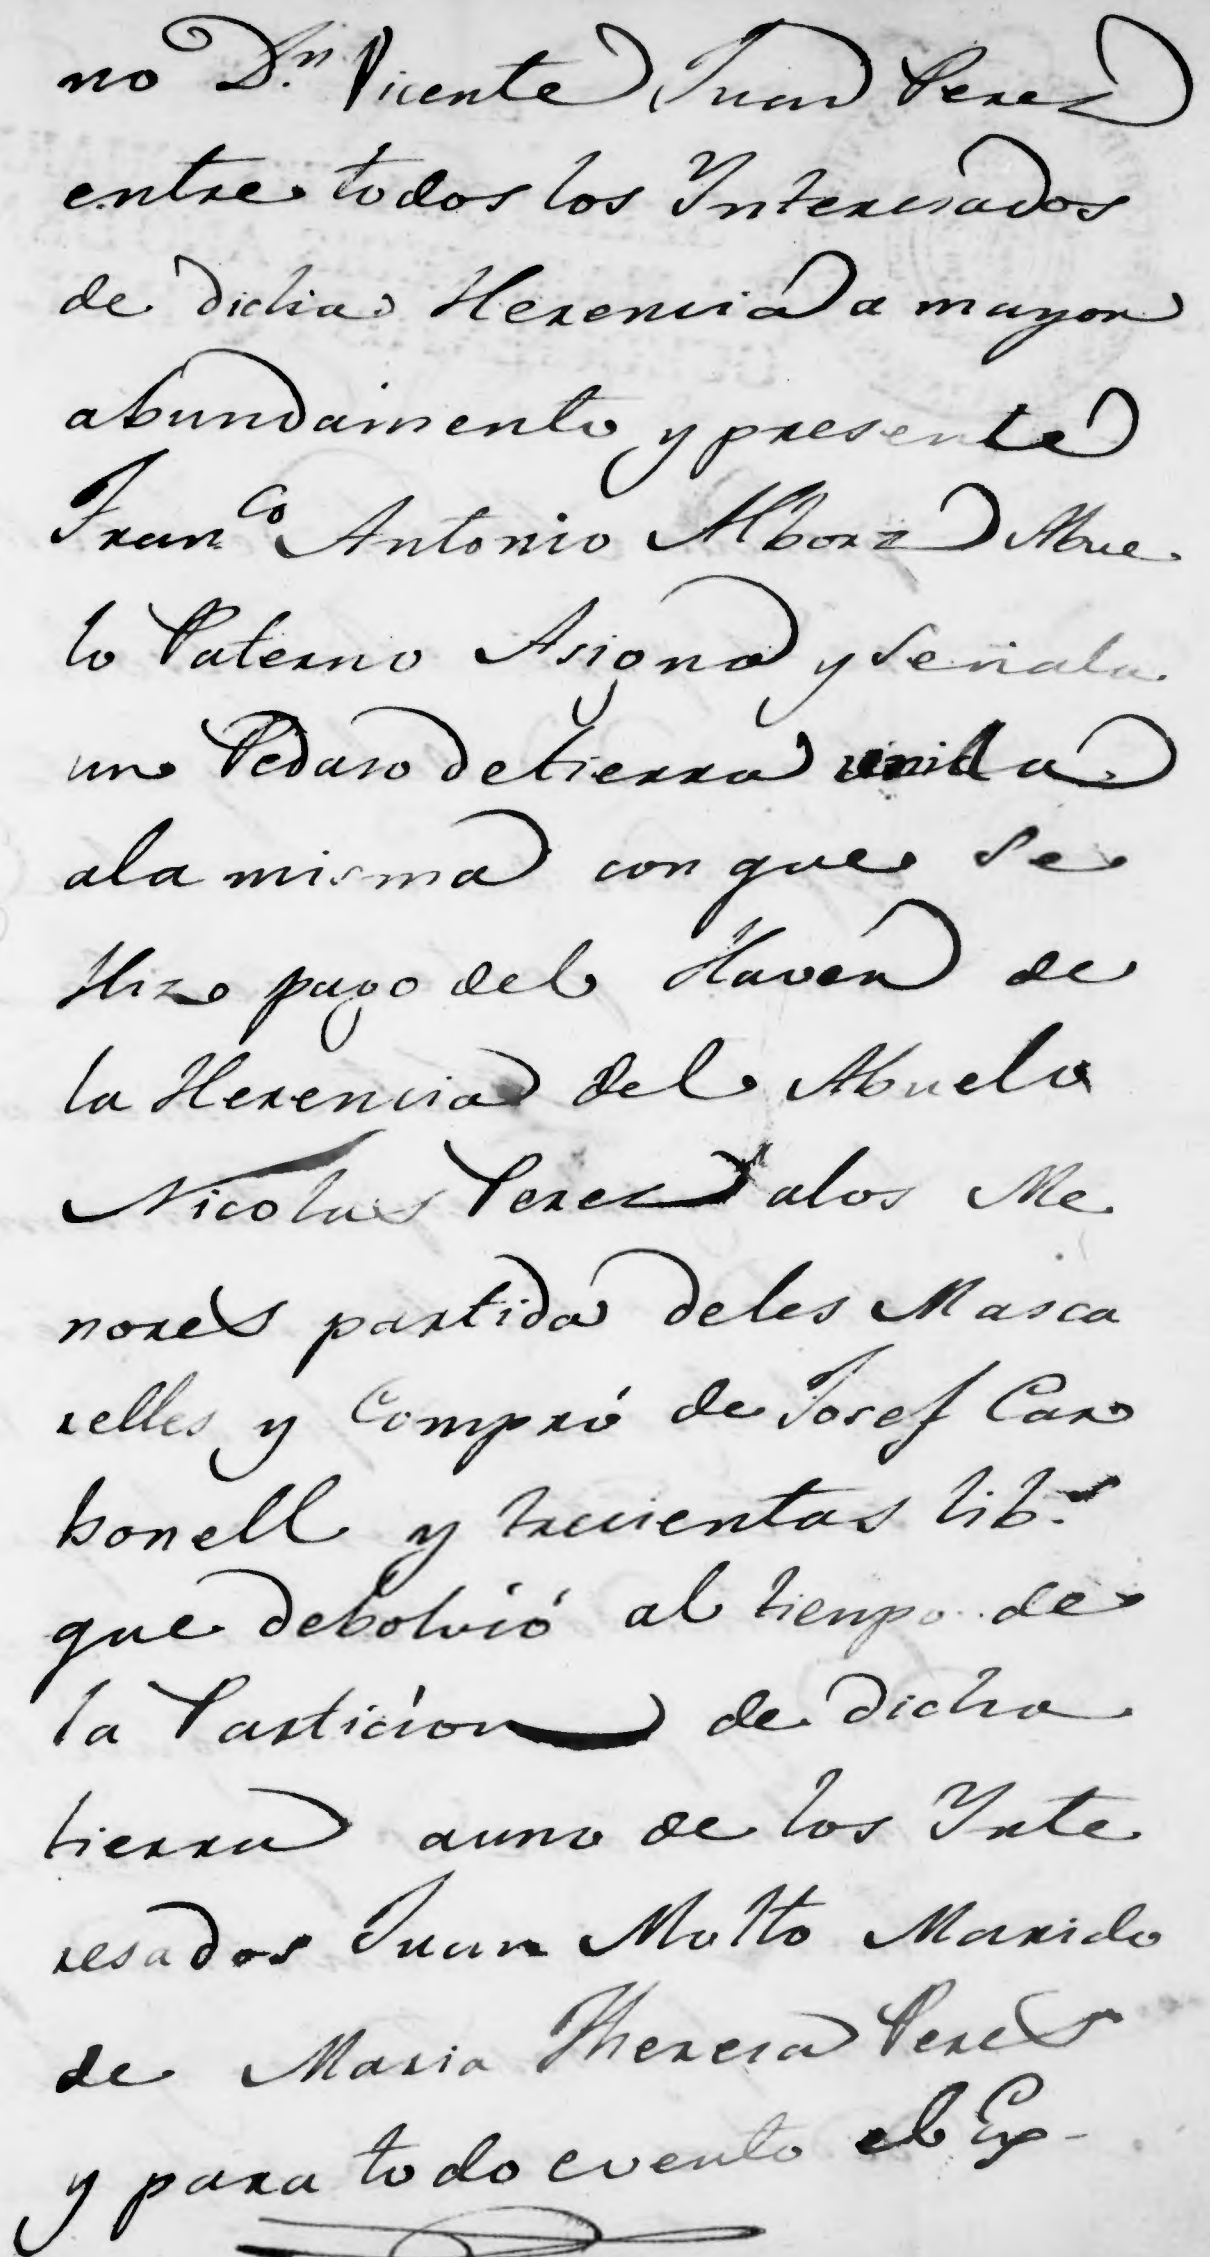 no D.n Vicente Juan Perez
entre todos los Ynteresados
de dicha Herencia a mayor
abundamento y presente
Fran.co Antonio Alborz Abue
lo Paterno Asigna y señala
un Pedaso detierra unida
ala misma con que se
Hizo pago del Haver de
la Herencia del Abuelo
Nicolas Perez alos Me
nores partida deles Masca
relles y Compró de Josef Car
bonell y trecientas lib.s
que debolvió al tiempo de
la Particion de dicha
tierra auno de los Ynte
resados Juan Molto Marido
de Maria Theresa Peres
y para todo evento el Ex-